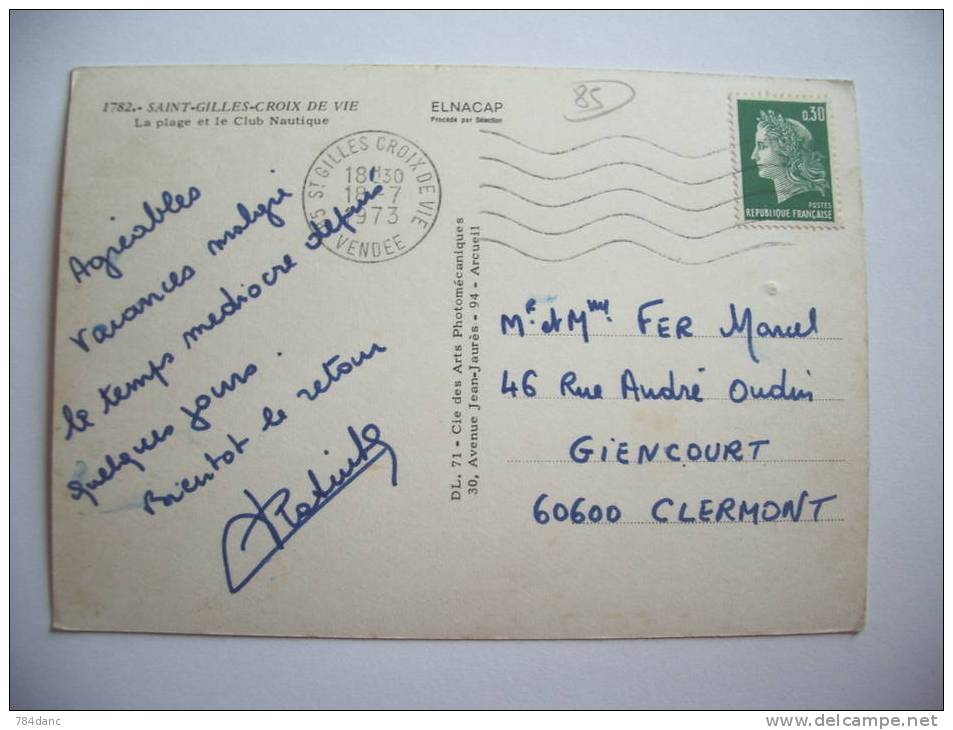 1782.- SAINT-GILLES-CROIX DE VIE
La plage et le Club Nautique
ELNACAP
Procédé par Sélection
85
0,30
POSTES
REPUBLIQUE FRANÇAISE
85 ST GILLES CROIX DE VIE
18H30
18-7
1973
VENDEE
Agréables
vacances malgré
le temps mediocre depuis
quelques jours.
Bientot le retour
DL. 71 - Cie des Arts Photomécaniques
30, Avenue Jean-Jaurès - 94 - Arcueil
Mr. et Mme. FER Marcel
46 Rue André Oudin
GIENCOURT
60600 CLERMONT
784danc
www.delcampe.net